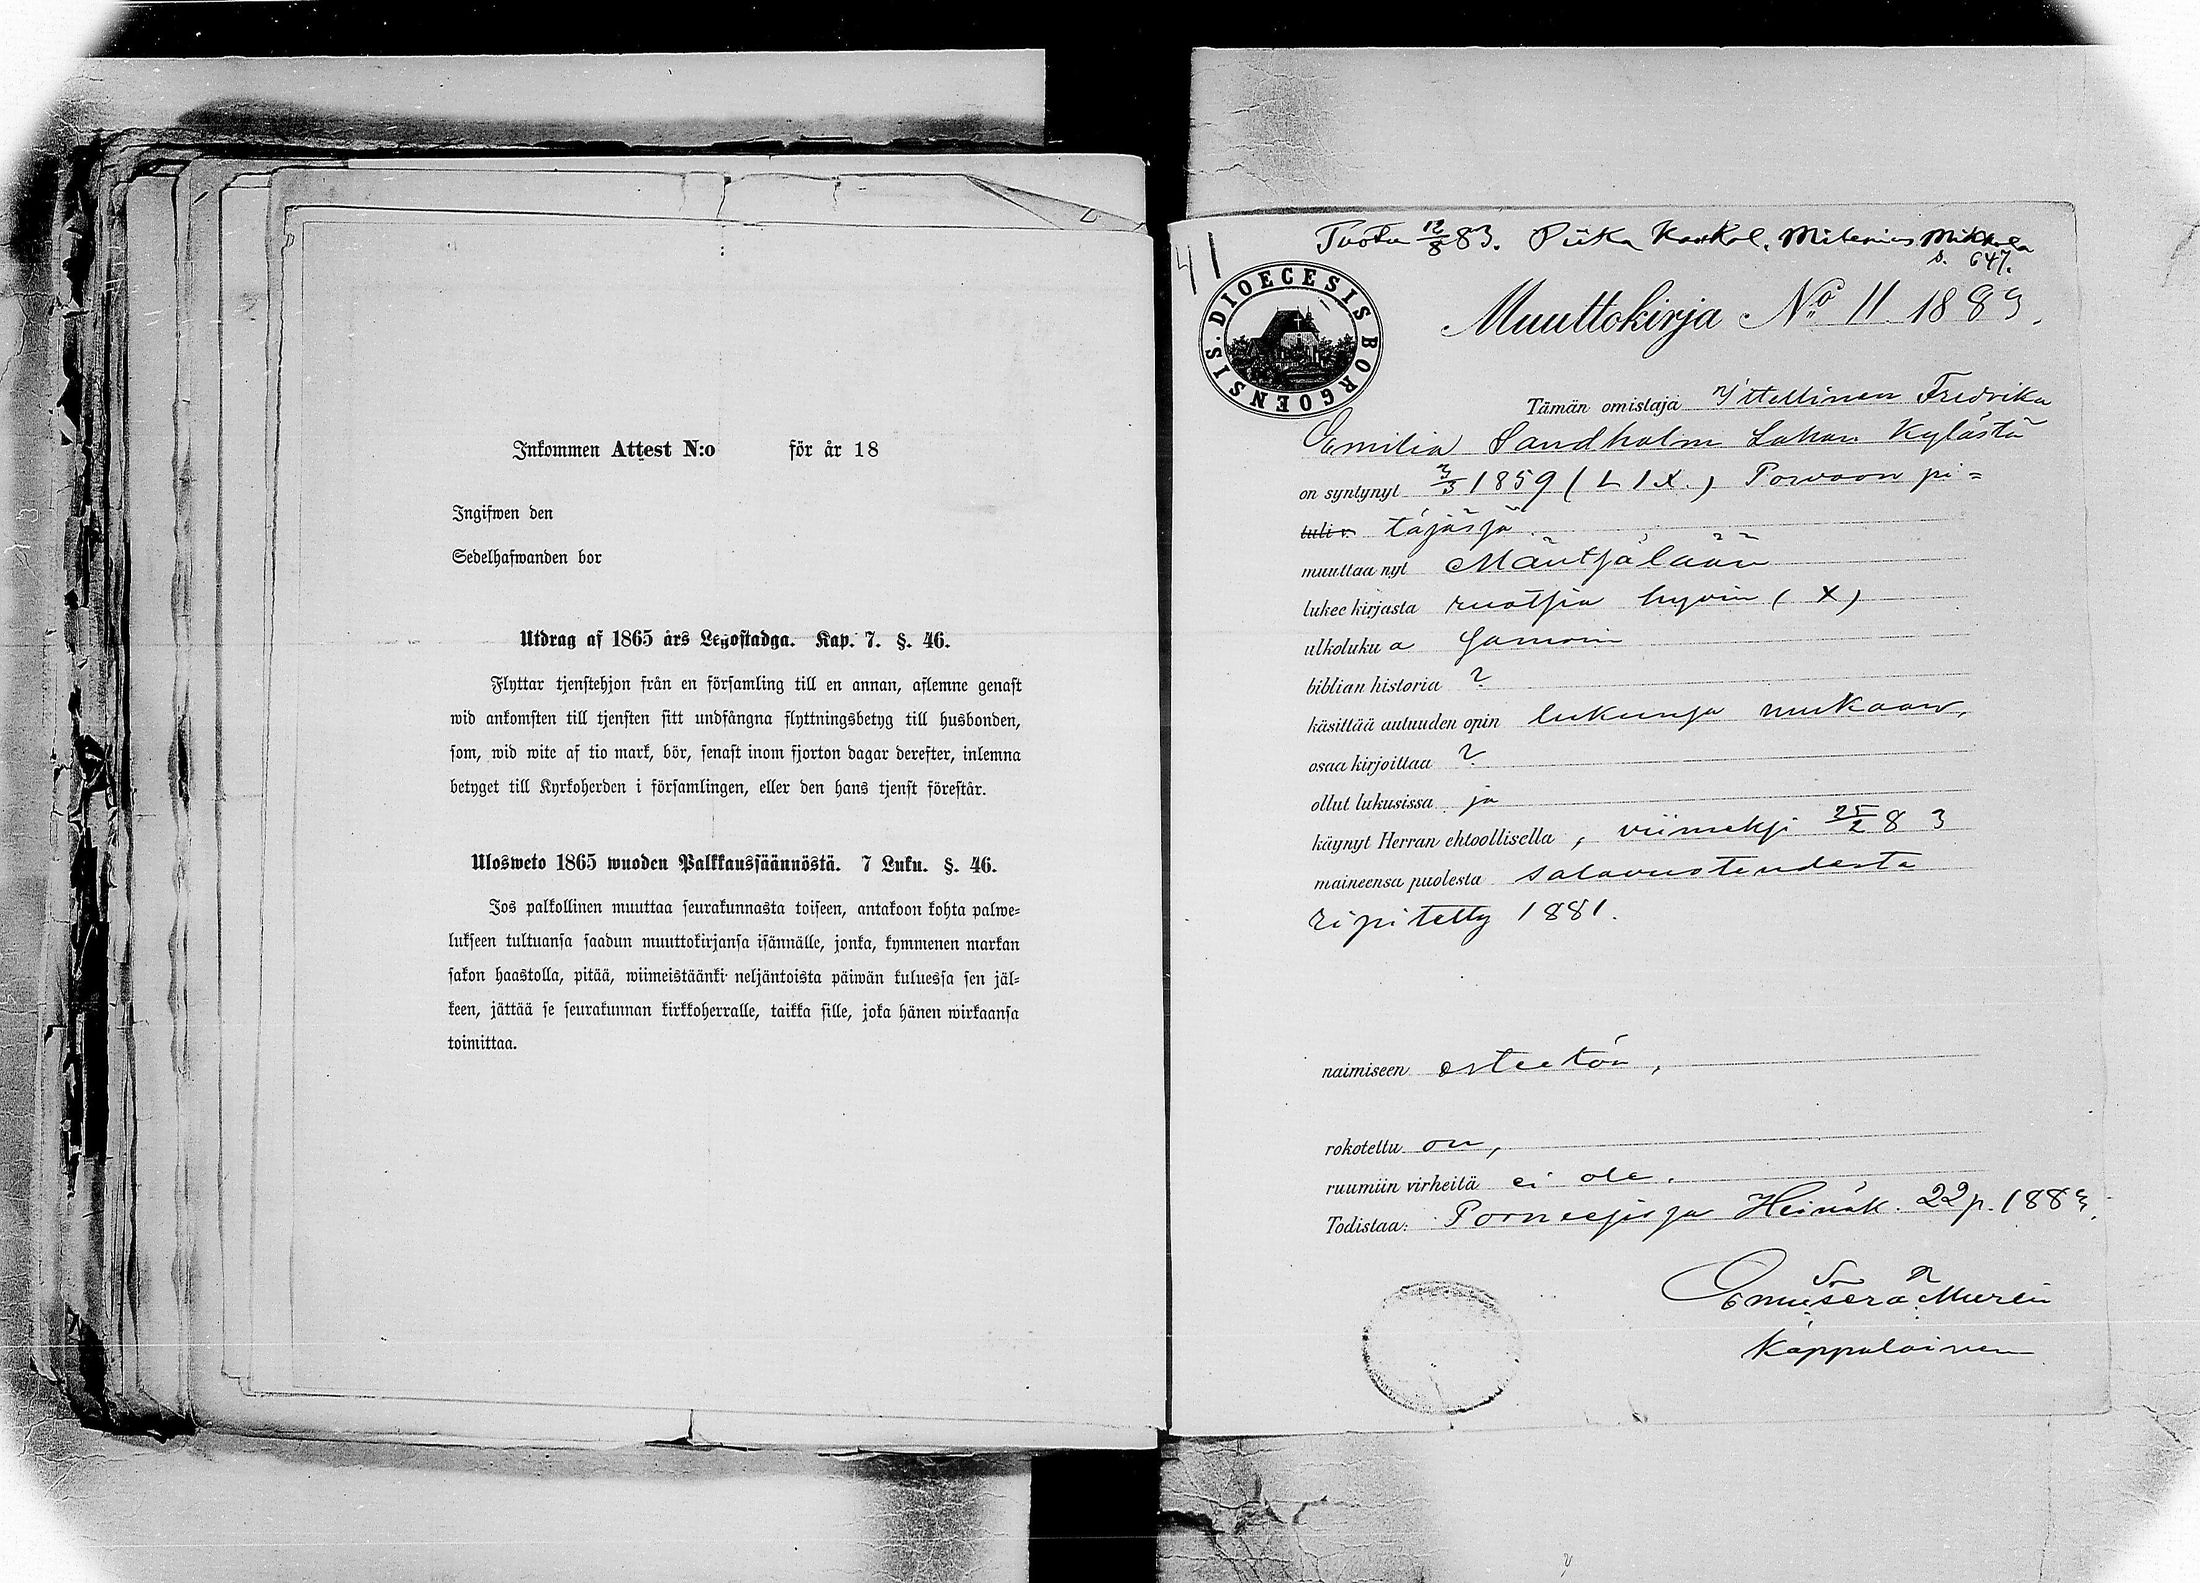 Inkommen Attest N:o för år 18
Ingifwen den
Sedelhafwanden bor
Utdrag af 1865 års Legostadga. Kap. 7. §. 46.
Flyttar tjenstehjon från en församling till en annan, aflemne genast
wid ankomsten till tjensten sitt undfångna flyttningsbetyg till husbonden,
som, wid wite af tio mark, bör, senast inom fjorton dagar derefter, inlemna
betyget till Kyrkoherden i församlingen, eller den hans tjenst förestår.
Ulosweto 1865 wuoden Palkkaussäännöstä. 7 Luku. §. 46.
Jos palkollinen muuttaa seurakunnasta toiseen, antakoon kohta palwe=
lukseen tultuansa saadun muuttokirjansa isännälle, jonka, kymmenen markan
sakon haastolla, pitää, wiimeistäänki neljäntoista päiwän kuluessa sen jäl=
keen, jättää se seurakunnan kirkkoherralle, taikka sille, joka hänen wirkaansa
toimittaa.
41
Tuotu 12/8 83. Piika Kaukal. Mikkola
s. 647.
DIOECESIS BORGOENSIS
Muuttokirja No 11 1883.
Tämän omistaja Itellinen Fredrika
Emilia Sandholm Lahan Kylästä
on syntynyt 3/3 1859 (LIX.) Porvoon pi=
tuli v. täjäsjä
muuttaa nyt Mäntsälään
lukee kirjasta ruotsia hyvin (X)
ulkoluku a Samoin
biblian historia ?
käsittää autuuden opin lukunsa mukaan,
osaa kirjoittaa ?
ollut lukusissa ja
käynyt Herran ehtoollisella, viimeksi 25/2 83
maineensa puolesta salavuoteudesta
ripitetty 1881.
naimiseen esteetön,
rokotettu on,
ruumiin virheitä ei ole.
Todistaa: Porneesissa Heinäk. 22 p. 1883.
Kappalainen